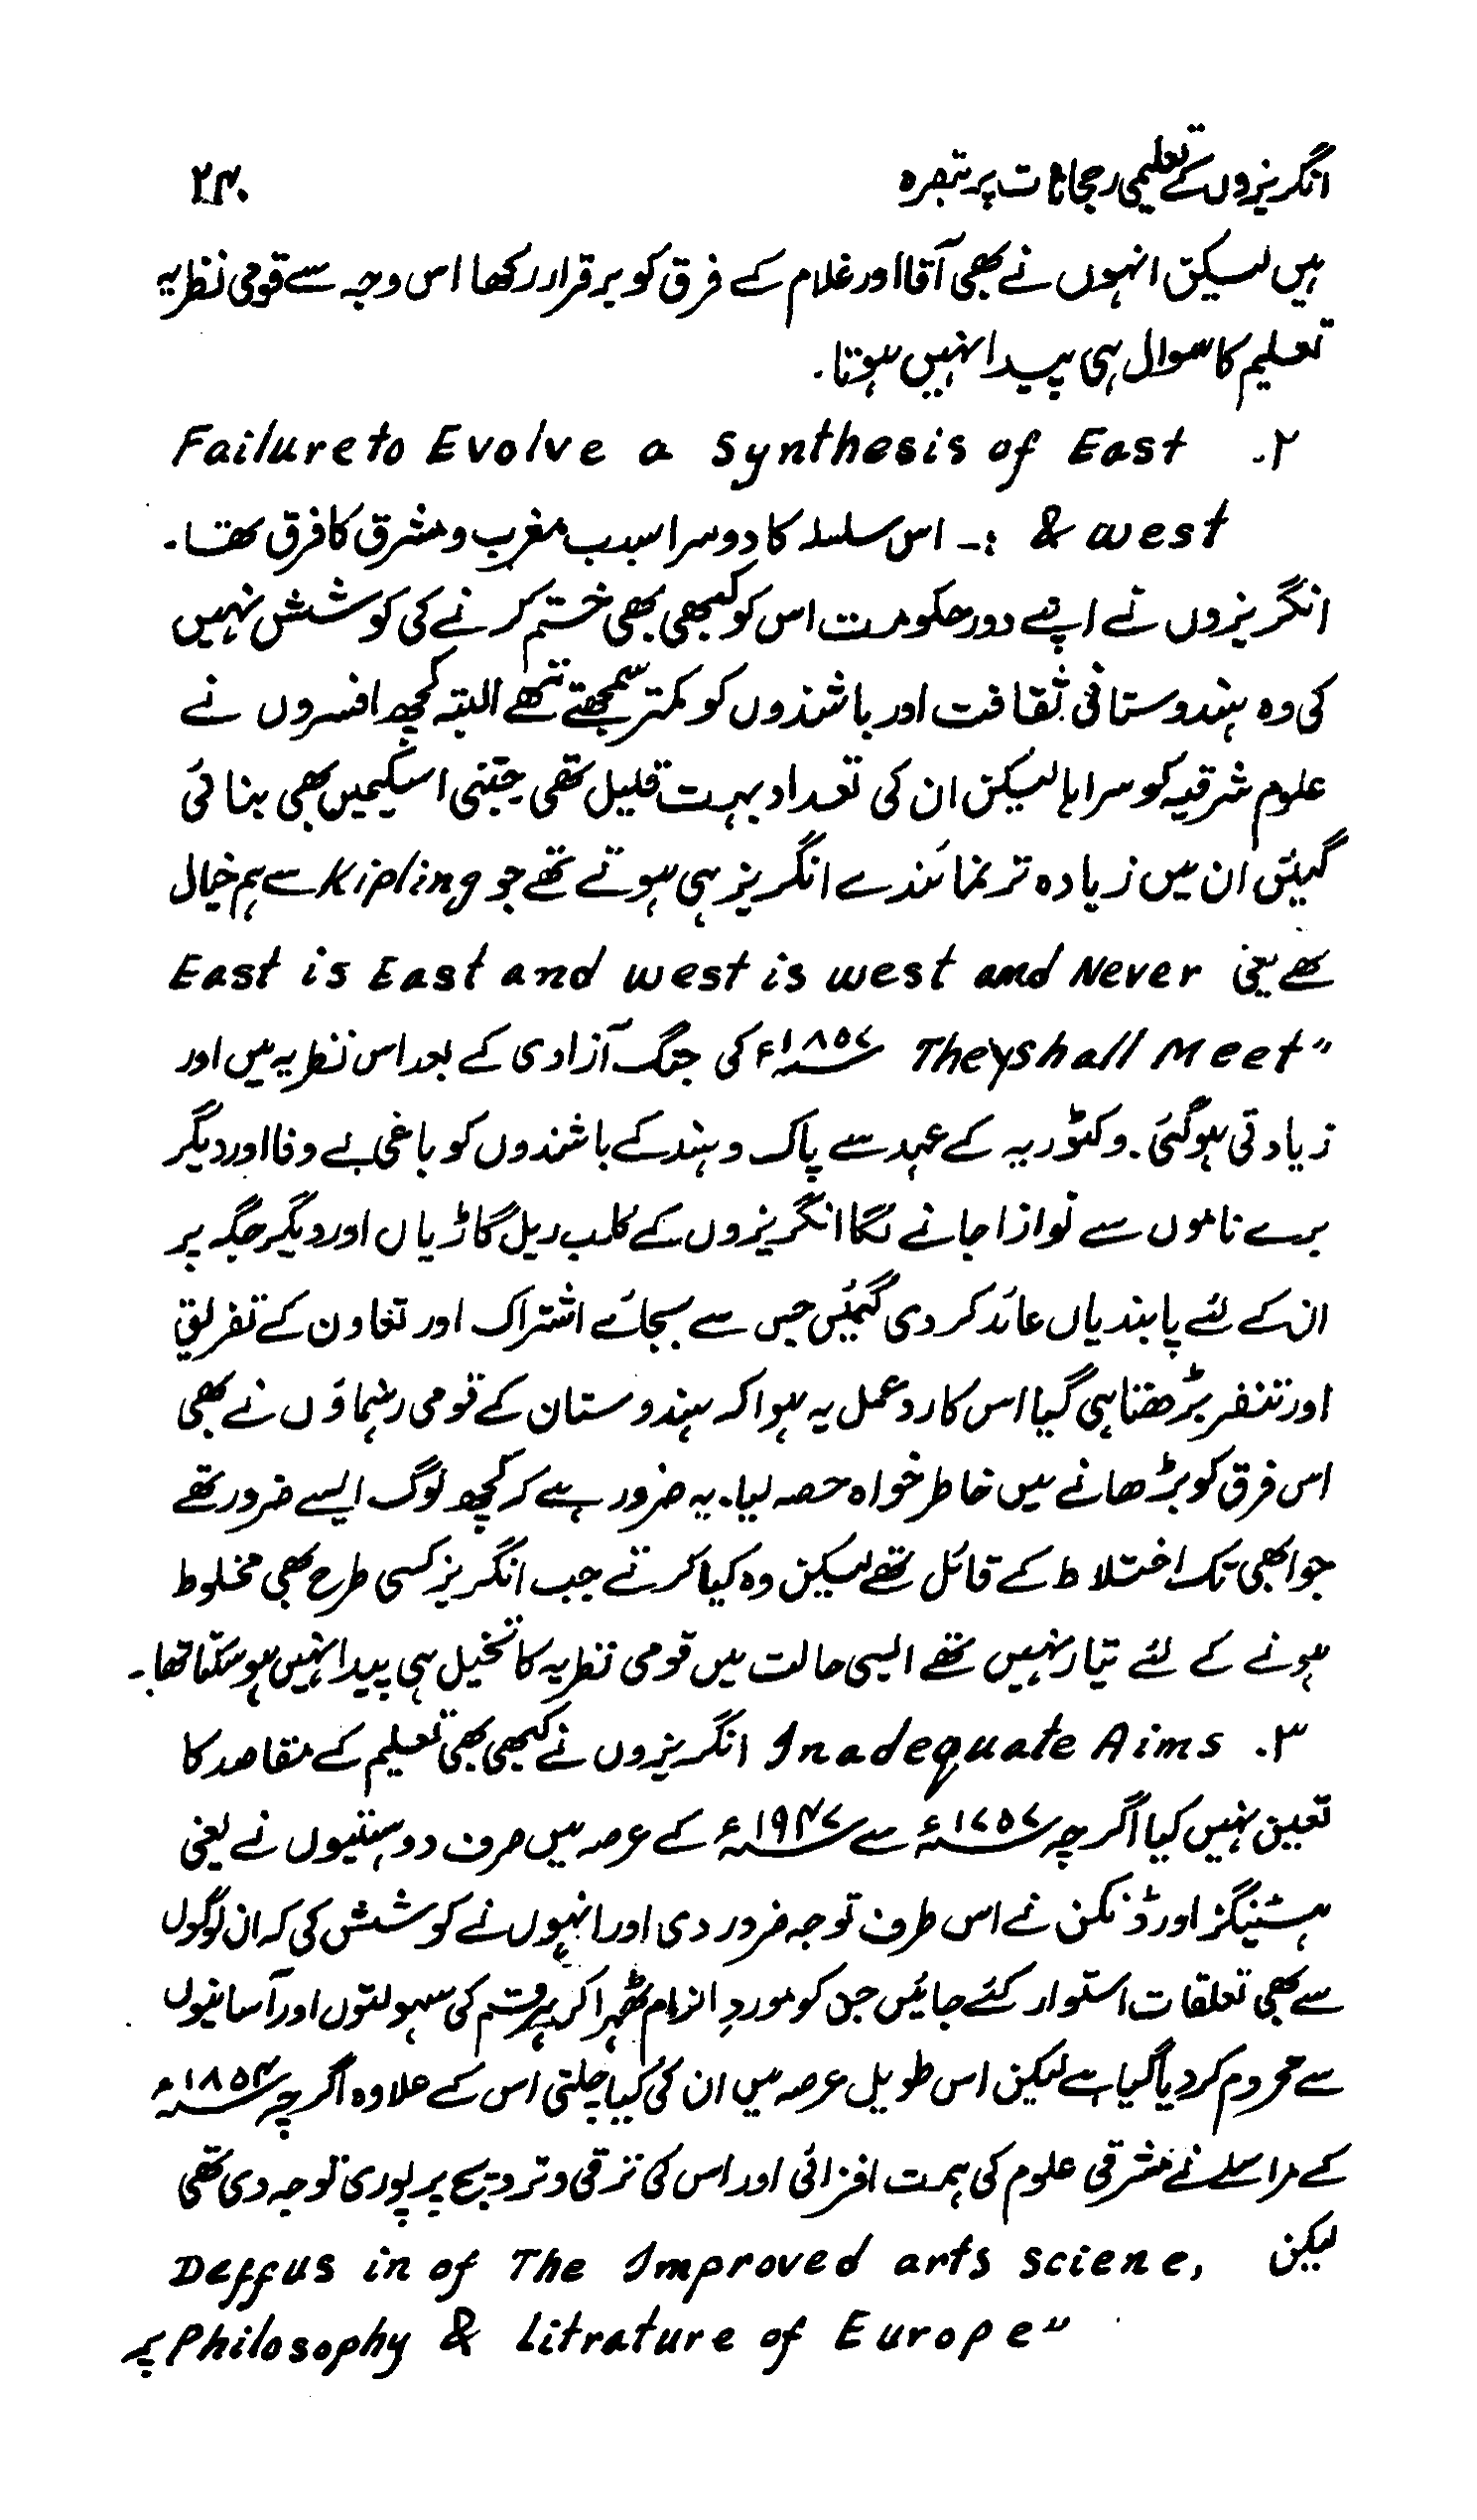 انگریزوں کے تعلیمی رجحانات پر تبصرہ ۲۴۰
ہیں لیکن انہوں نے بھی آقا اور غلام کے فرق کو برقرار رکھا اس وجہ سے قومی نظریہ
تعلیم کا سوال ہی پیدا نہیں ہوتا۔
۲. Failure to Evolve a Synthesis of East
& west :۔ اس سلسلہ کا دوسرا سبب مغرب و مشرق کا فرق تھا۔
انگریزوں نے اپنے دور حکومت اس کو کبھی بھی ختم کرنے کی کوشش نہیں
کی وہ ہندوستانی ثقافت اور باشندوں کو کمتر سمجھتے تھے البتہ کچھ افسروں نے
علوم شرقیہ کو سراہا لیکن ان کی تعداد بہت قلیل تھی جتنی اسکیمیں بھی بنائی
گیئں ان میں زیادہ تر نمائندے انگریز ہی ہوتے تھے جو Kipling سے ہم خیال
تھے یعنی East is East and west is west and Never
They shall Meet" ۱۸۵۷ء کی جنگ آزادی کے بعد اس نظریہ میں اور
زیادتی ہوگئی۔ وکٹوریہ کے عہد سے پاک و ہند کے باشندوں کو باغی بے وفا اور دیگر
برے ناموں سے نوازا جانے لگا انگریزوں کے کلب ریل گاڑیاں اور دیگر جگہ پر
ان کے لئے پابندیاں عائد کر دی گیئں جس سے بجائے اشتراک اور تعاون کے تفریق
اور تنفر بڑھتا ہی گیا اس کا ردعمل یہ ہوا کہ ہندوستان کے قومی رہنماؤں نے بھی
اس فرق کو بڑھانے میں خاطر خواہ حصہ لیا۔ یہ ضرور ہے کہ کچھ لوگ ایسے ضرور تھے
جو ابھی تک اختلاط کے قائل تھے لیکن وہ کیا کرتے جب انگریز کسی طرح بھی مخلوط
ہونے کے لئے تیار نہیں تھے ایسی حالت میں قومی نظریہ کا تخیل ہی پیدا نہیں ہوسکتا تھا۔
۳. Inadequate Aims انگریزوں نے کبھی بھی تعلیم کے مقاصد کا
تعین نہیں کیا اگرچہ ۱۷۵۷ء سے ۱۹۴۷ء کے عرصہ میں صرف دو ہستیوں نے یعنی
ہسٹینگز اور ڈنکن نے اس طرف توجہ ضرور دی اور انہوں نے کوشش کی کہ ان لوگوں
سے بھی تعلقات استوار کئے جائیں جن کو موردِ الزام ٹھہرا کر ہر قسم کی سہولتوں اور آسانیوں
سے محروم کر دیا گیا ہے لیکن اس طویل عرصہ میں ان کی کیا چلتی اس کے علاوہ اگرچہ ۱۸۵۴ء
کے مراسلے نے مشرقی علوم کی ہمت افزائی اور اس کی ترقی و ترویج پر پوری توجہ دی تھی
لیکن Deffus in of The Improved arts sciene,
Philosophy & Litrature of Europe" پر